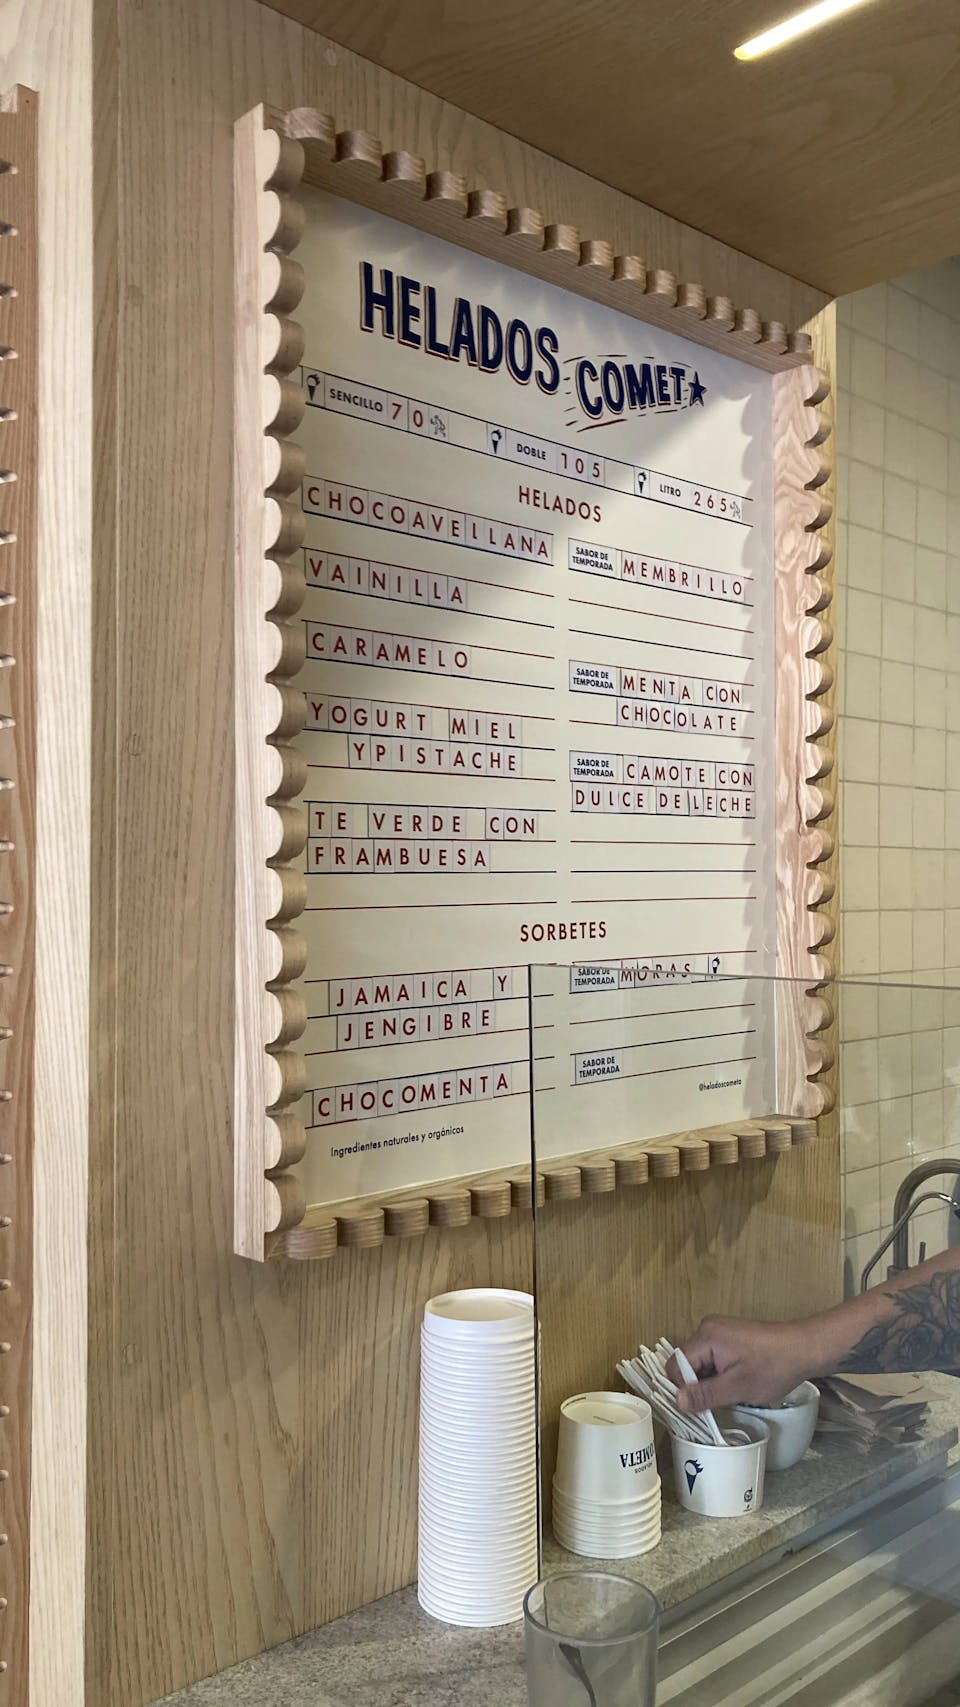 HELADOS COMET★
SENCILLO 70 DOBLE 105 LITRO 265
HELADOS
CHOCOAVELLANA
VAINILLA
CARAMELO
YOGURT MIEL
YPISTACHE
TE VERDE CON
FRAMBUESA
SABOR DE
TEMPORADA
MEMBRILLO
SABOR DE
TEMPORADA
MENTA CON
CHOCOLATE
SABOR DE
TEMPORADA
CAMOTE CON
DULCE DE LECHE
SORBETES
JAMAICA Y
JENGIBRE
CHOCOMENTA
SABOR DE
TEMPORADA
MORAS
SABOR DE
TEMPORADA
Ingredientes naturales y orgánicos
@heladoscometa
HELADOS
COMETA